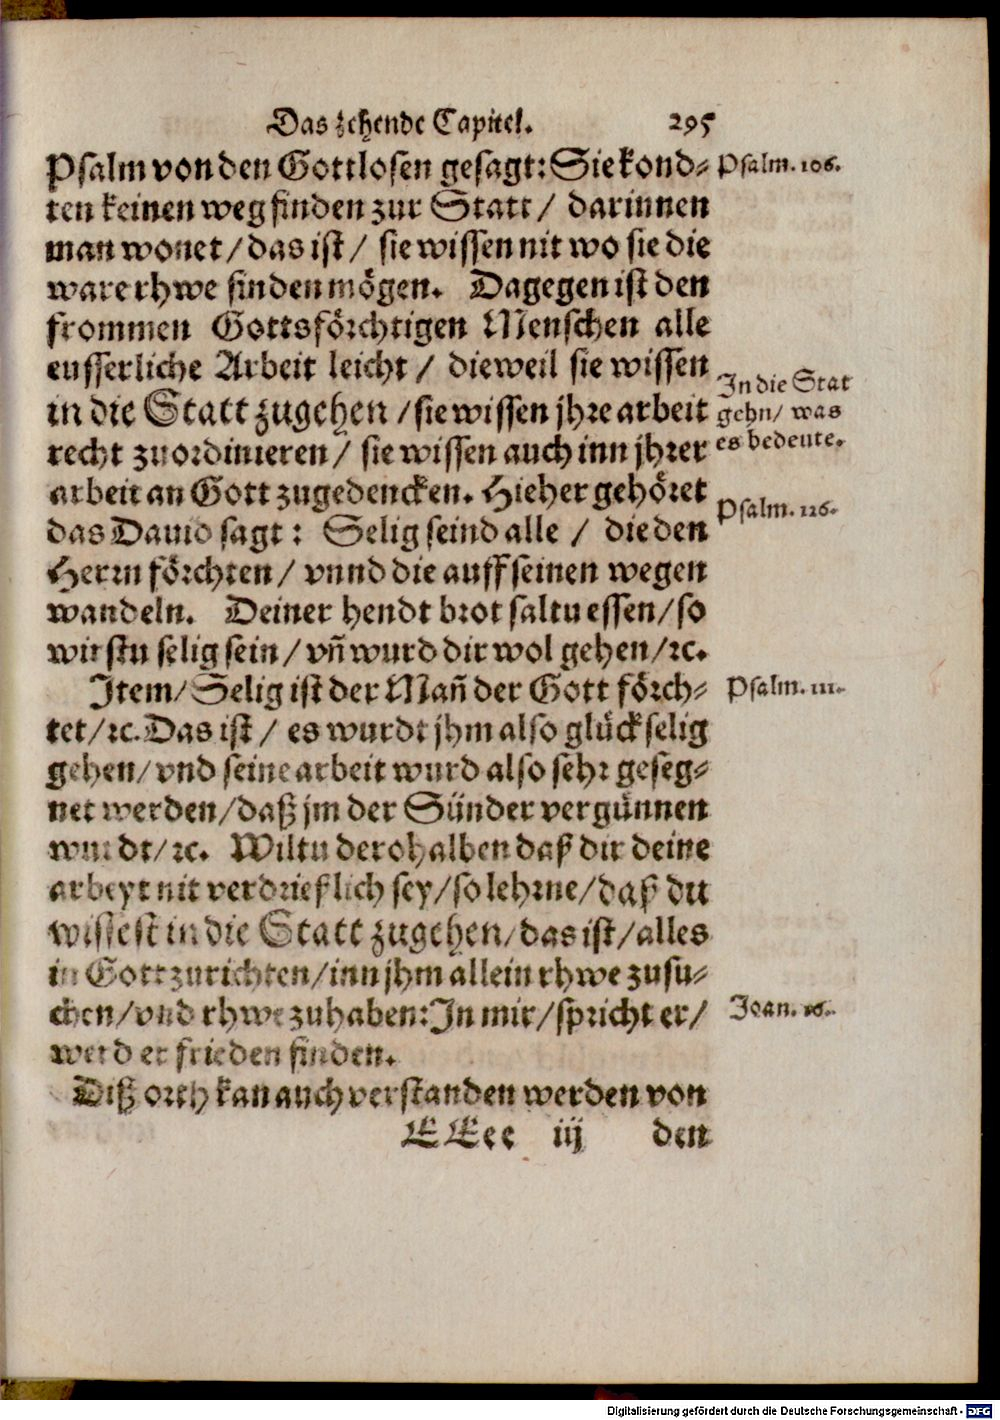 Das zehende Capitel. 295
Psalm von den Gottlosen gesagt: Sie kond- Psalm. 106.
ten keinen weg finden zur Statt / darinnen
man wonet / das ist / sie wissen nit wo sie die
ware rhwe finden mögen. Dagegen ist den
frommen Gottsförchtigen Menschen alle
eusserliche Arbeit leicht / dieweil sie wissen
in die Statt zugehen / sie wissen jhre arbeit
recht zuordinieren / sie wissen auch inn jhrer
In die Stat
gehn / was
es bedeute.
arbeit an Gott zugedencken. Hieher gehöret
das Dauid sagt: Selig seind alle / die den Psalm. 126.
Herrn förchten / vnnd die auff seinen wegen
wandeln. Deiner hendt brot saltu essen / so
wirstu selig sein / vñ wurd dir wol gehen / ꝛc.
Item / Selig ist der Mañ der Gott förch- Psalm. 111.
tet / ꝛc. Das ist / es wurdt jhm also glückselig
gehen / vnd seine arbeit wurd also sehr geseg-
net werden / daß jm der Sünder vergünnen
wurdt / ꝛc. Wiltu derohalben daß dir deine
arbeyt nit verdrießlich sey / so lehrne / daß du
wissest in die Statt zugehen / das ist / alles
in Gott zurichten / inn jhm allein rhwe zusu-
chen / vnd rhwe zuhaben: In mir / spricht er / Joan. 16.
werd er frieden finden.
Diß orth kan auch verstanden werden von
EEee iij den
Digitalisierung gefördert durch die Deutsche Forschungsgemeinschaft - DFG